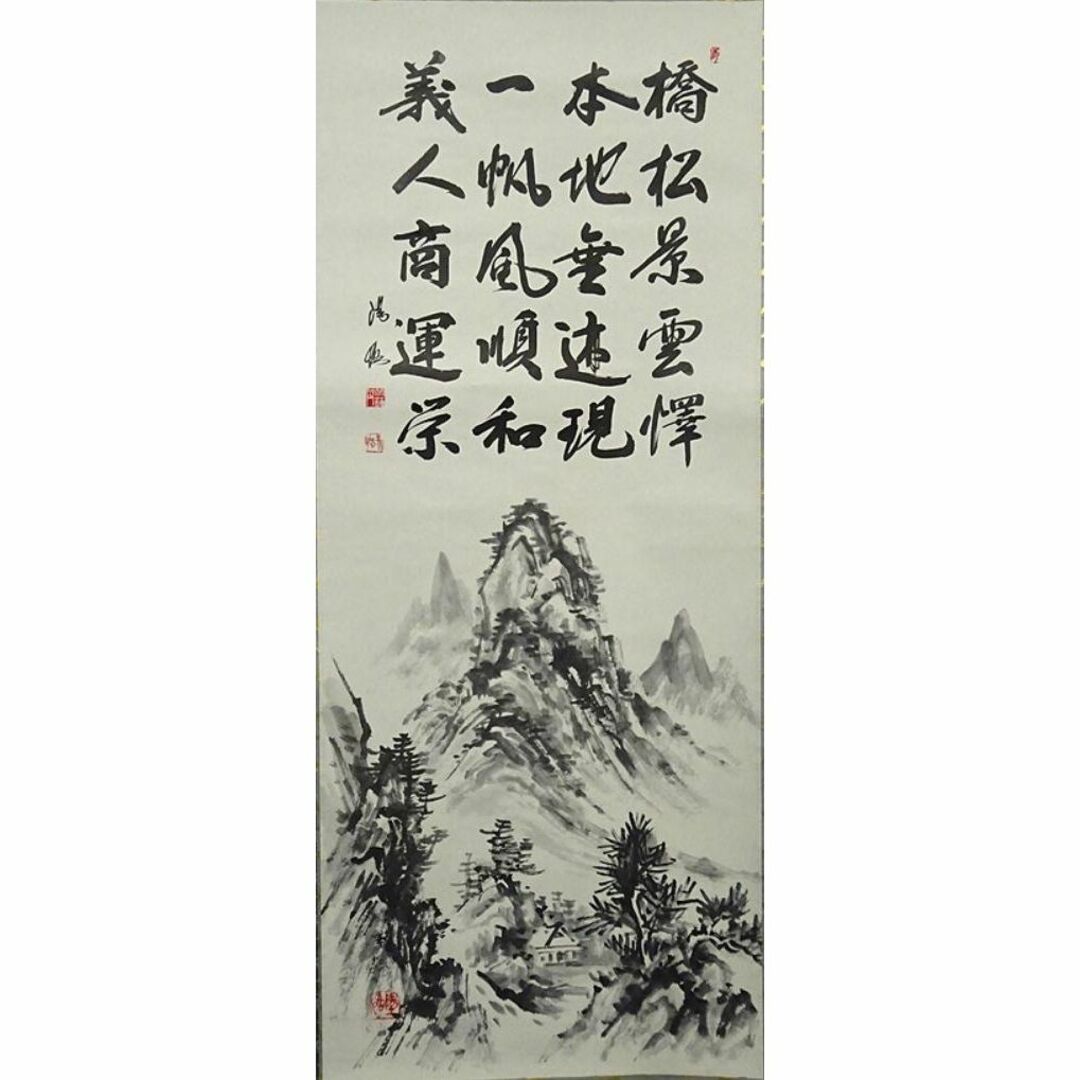 橋松景雲懌
本地無迹現
一帆風順和
義人商運栄